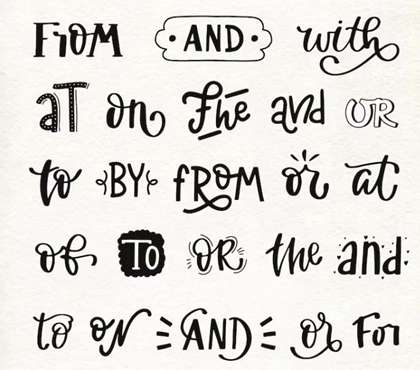 FroM ·AND· with
aT on The and OR
to BY fROM or at
of To OR the and
to oN AND or For